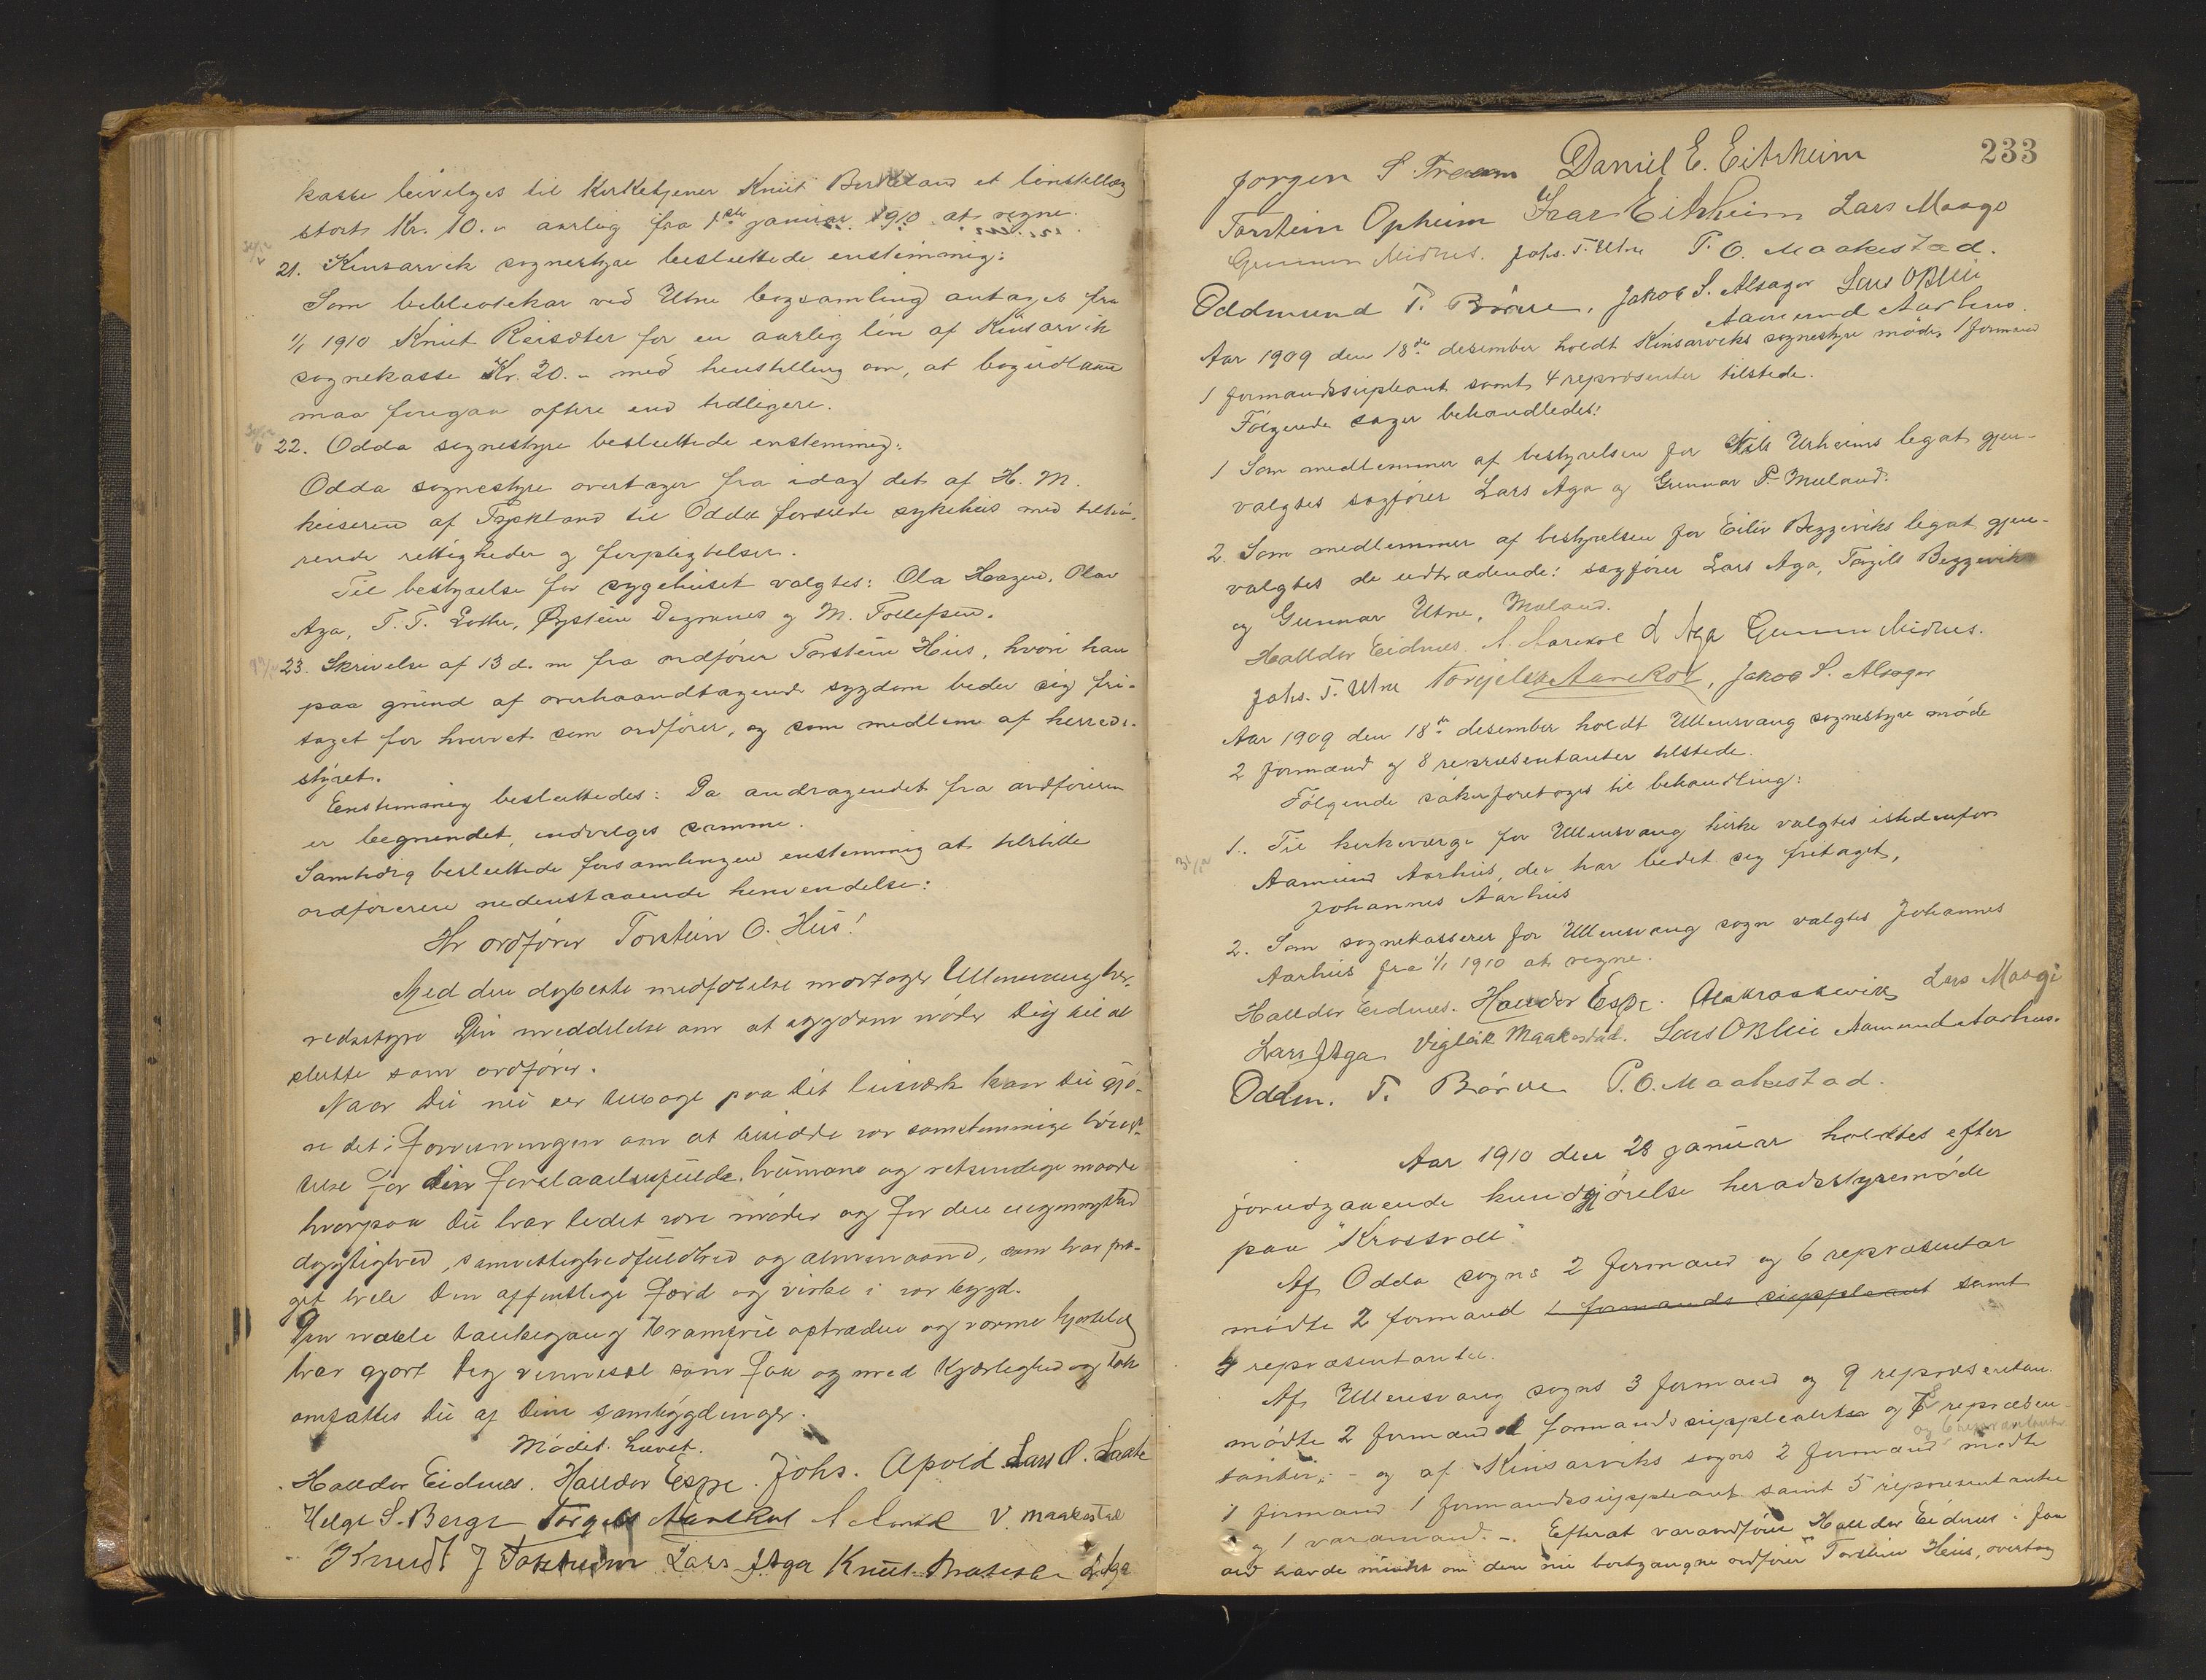 kasse bevilges til Kirketjener Knut Berkeland et løntillæg
stort Kr. 10.- aarlig fra 1ste januar 1910 at regne.
21. Kinsarvik sognestyre besluttede enstemmig:
Som bibliotekar ved Utne bogsamling antages fra
1/1 1910 Knut Reisæter for en aarlig løn af Kinsarvik
sognekasse Kr. 20.- med henstilling om, at bogudlaan
maa foregaa oftere end tidligere.
22. Odda sognestyre besluttede enstemmig:
Odda sognestyre overtager fra idag det af H. M.
keiseren af Tyskland til Odda forærede sykehus med tilhø-
rende rettigheder og forpligtelser.
Til bestyrelse for sygehuset valgtes: Ola Hagen, Olav
Aga, T. T. Lothe, Øystein Digranes og M. Tollefsen.
23. Skrivelse af 13 d. m fra ordfører Torstein Hus, hvori han
paa grund af overhaandtagende sygdom beder sig fri-
taget for hvervet som ordfører, og som medlem af herreds-
styret.
Enstemmig besluttedes: Da andragendet fra ordføreren
er begrundet, indvilges samme.
Samtidig besluttede forsamlingen enstemmig at tilstille
ordføreren nedenstaaende henvendelse:
Hr ordfører Torstein O. Hus!
Med den dybeste medfølelse modtager Ullensvang her-
redsstyre Din meddelelse om at sygdom nøder Dig til at
slutte som ordfører.
Naar Du nu ser tilbage paa Dit livsverk kan Du gjø-
re det i forvisningen om at bevidne vor samstemmige
for Din forstaaelsesfulde, humane og retsindige maade
hvorpaa Du har ledet vore møder og for den uegennytted
dygtighed, samvittighedsfuldhed og almenaand, som har præ-
get hele Din offentlige færd og virke i vor bygd.
Din tankegang optræden og varme hjertelag
har gjort Deg vennesæl som faa og med Kjærlighed og tak
omfattes Du af Dine sambygdinger.
Mødet hævet.
Halldor Eidnes. Halldor Espe. Johs. Apold Lars O.
Helge S. Berge Torgils Aarekol A Aarekol V. Maakestad
Knudt J Tokheim Lars J Aga Knut L Aga
233
Jørgen S. Traan Daniel E. Eitrheim
Torstein Opheim Ivar Eitrheim Lars Maage
Gunnar Midnes. Johs. T. Utne P. O. Maakestad.
Oddmund T. Børve, Jakob S. Alsager Lars O Bleie
Aamund Aarhus.
Aar 1909 den 18de desember holdt Kinsarviks sognestyre møde, 1 formand
1 formandssupleant samt 4 repræsenter tilstede.
Følgende sager behandledes:
1 Som medlemmer af bestyrelsen for Nils Urheims legat gjen-
valgtes sagfører Lars Aga og Gunnar P. Mæland.
2. Som medlemmer af bestyrelsen for Eiliv Beggeviks legat gjen-
valgtes de udtrædende: sagfører Lars Aga, Torgils Beggevik
og Gunnar Utne, Mæland.
Halldor Eidnes A. Aarekol L Aga Gunnar Midnes.
Johs. T. Utne Torgils Aarekol, Jakob S. Alsager
Aar 1909 den 18de desember holdt Ullensvang sognestyre møde
2 formænd og 8 repræsentanter tilstede.
Følgende saker foretoges til behandling:
1. Til kirkeværge for Ullensvang kirke valgtes istedenfor
Aamund Aarhus, der har bedet sig fritaget,
Johannes Aarhus
2. Som sognekasserer for Ullensvang sogn valgtes Johannes
Aarhus fra 1/1 1910 at regne.
Halldor Eidnes. Halldor Espe. Lars Maage
Lars J Aga Vigleik Maakestad. Lars O Bleie Aamund Aarhus.
Oddm. T. Børve P. O. Maakestad.
Aar 1910 den 28 januar holdtes efter
forudgaaende kundgjørelse heradsstyremøde
paa "Krossvoll"
Af Odda sogns 2 formænd og 6 repræsentar
mødte 2 formænd 1 formands suppleant samt
4 repræsentanter.
Af Ullensvang sogns 3 formænd og 9 repræsentan-
mødte 2 formænd 1 formandssuppleanter og 8 repræsen-
tanter; - og af Kinsarviks sogns 2 formænd og 6 repræsentanter mødte
1 formand 1 formandssuppleant samt 5 repræsentanter
og 1 varamand. -. Efterat varaordfører Halldor Eidnes i faa
ord havde mindet om den nu bortgangne ordfører Torstein Hus, overtog